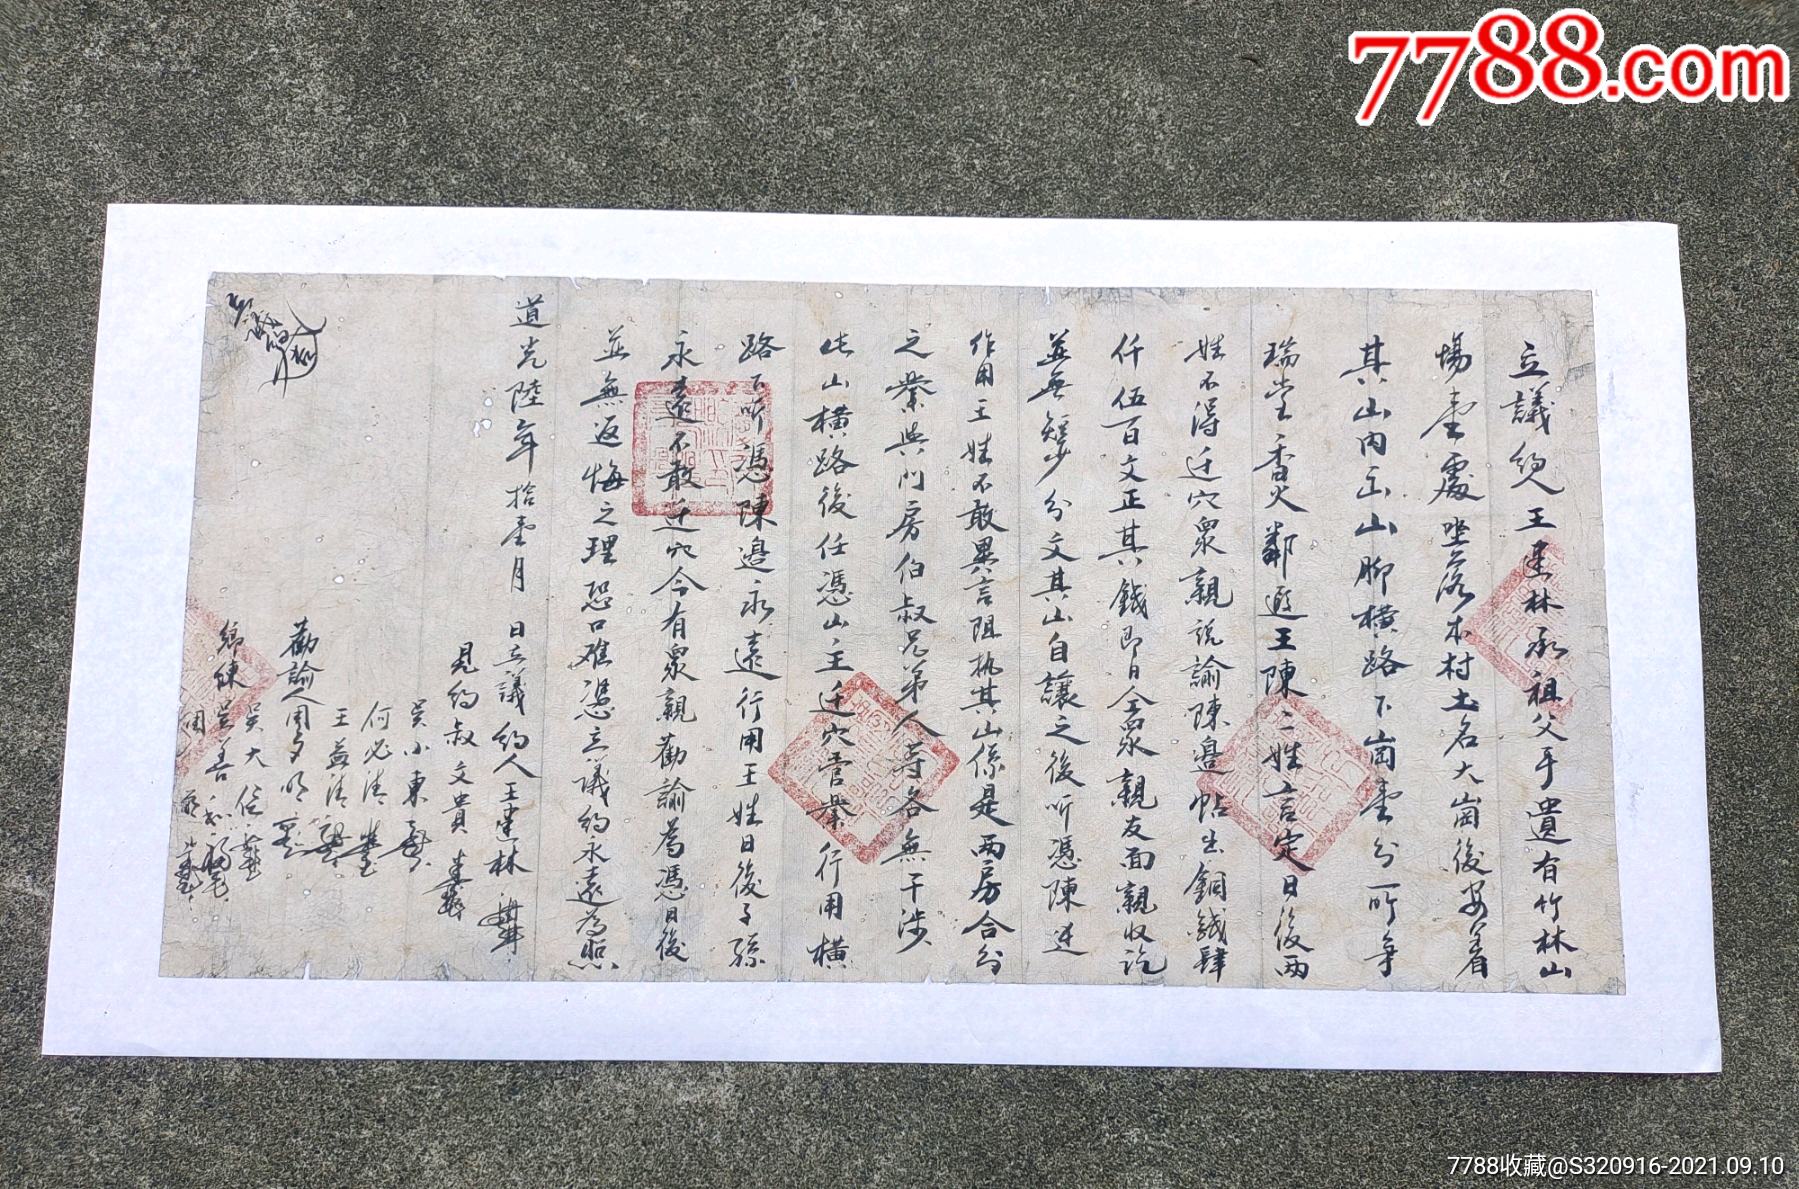 7788.com
立議約人王建林承祖父手遺有竹林山
場壹處坐落本村土名大崗後安着
其山內至山脚橫路下崗壹分所爭
瑞堂香火鄰近王陳二姓言定日後兩
姓不得迁穴衆親説諭陳邊帖出銅錢肆
仟伍百文正其錢即日仝衆親友面親收訖
並無短少分文其山自讓之後听憑陳边
作用王姓不敢異言阻执其山係是兩房合分
之業與门房伯叔兄弟人等各無干涉
此山橫路後任憑山主迁穴管業行用橫
路下听憑陳邊永遠行用王姓日後子孫
永遠不敢迁穴今有衆親勸諭為憑日後
並無返悔之理恐口难憑立議約永遠為照
道光陸年拾壹月 日立議約人王建林
見約叔文貴
吴小東
何必清
王益清
勸諭人周
吴大任
鄉練吴
周
7788收藏@S320916-2021.09.10